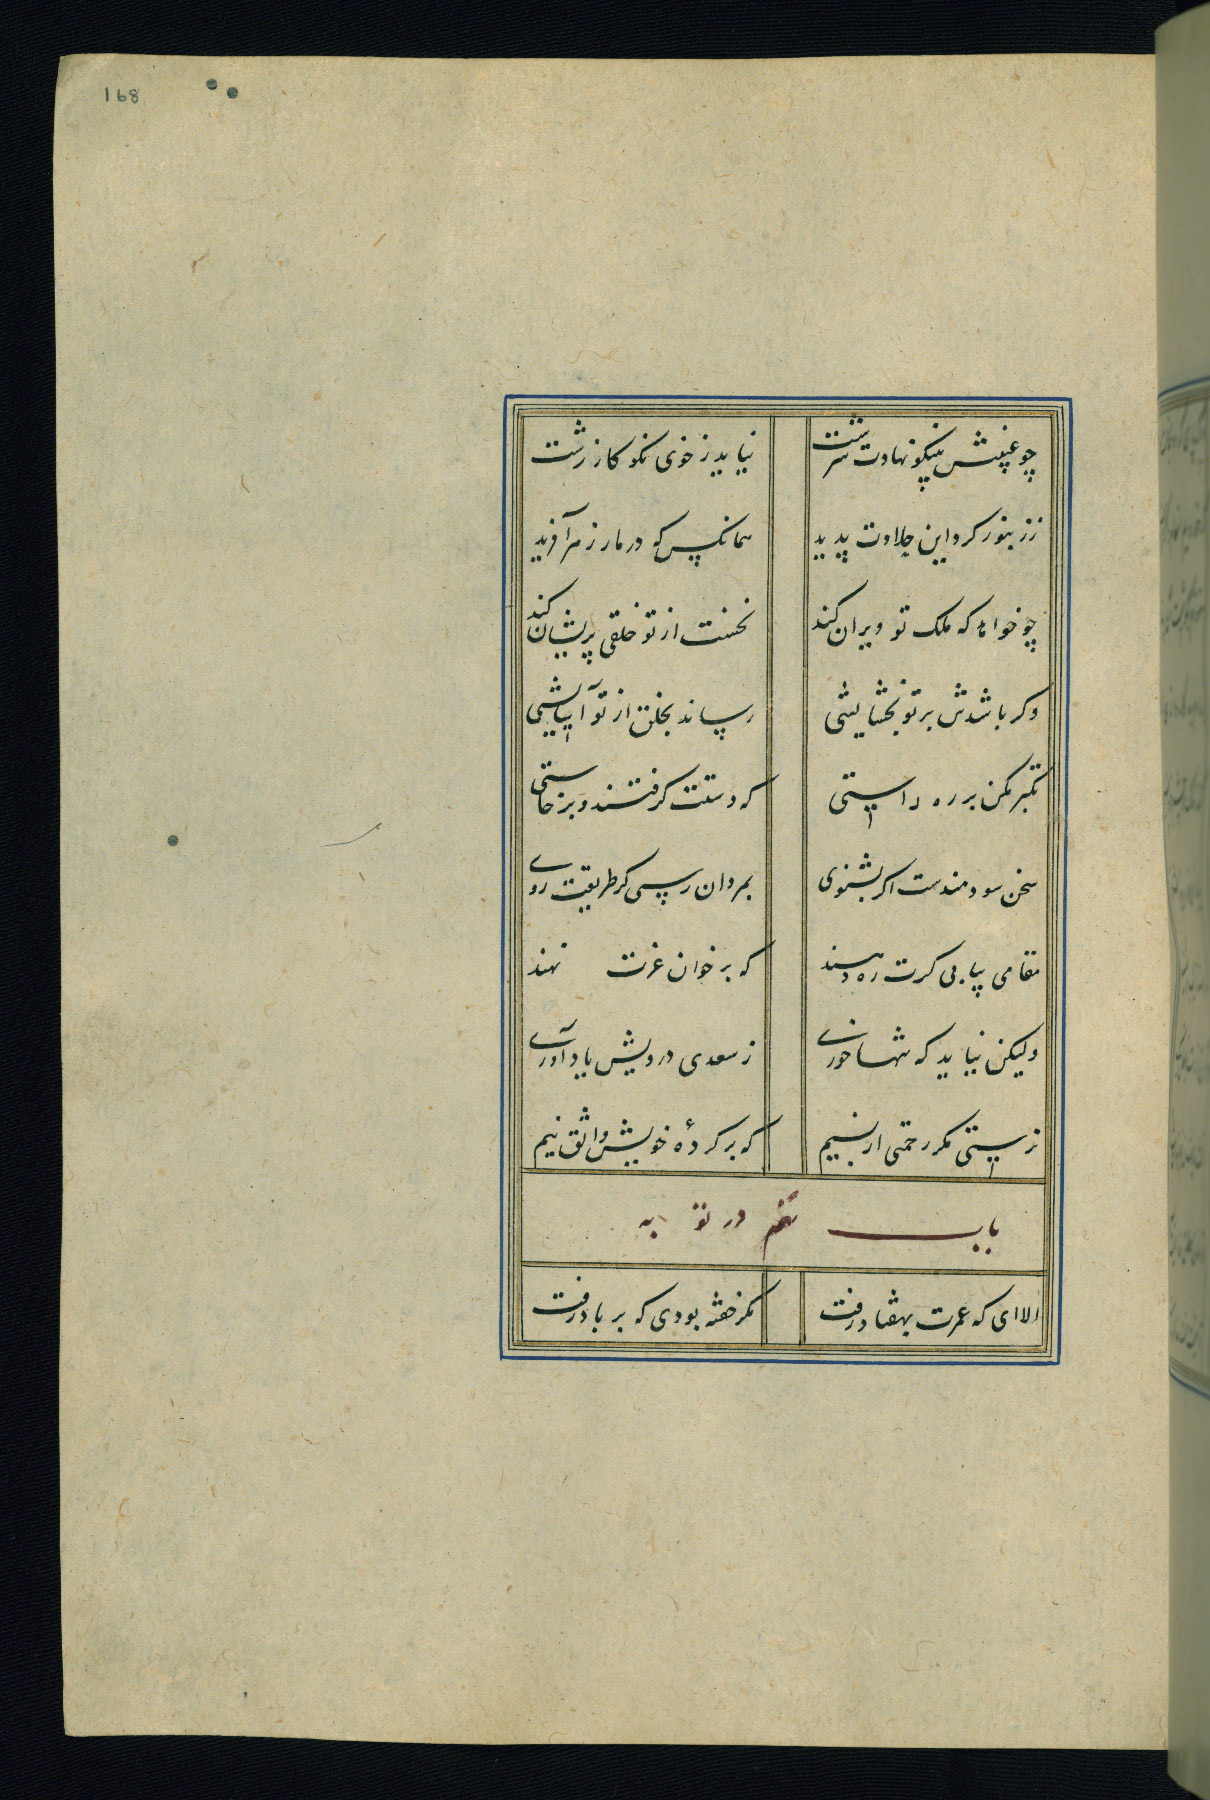 168
چو غیبش نیکو نهادت سرشت نیاید ز خوی نکو کار زشت
ز زنبور کرد این حلاوت پدید همانکس که در مار زهر آفرید
چو خواهد که ملک تو ویران کند نخست از تو خلقی پریشان کند
وکر باشدش بر تو بخشایشی رساند بخلق از تو آسایشی
تکبر مکن بر ره راستی که دستت کرفتند و برخاستی
سخن سودمندست اکر بشنوی بمردان رسی کر طریقت روی
مقامی بیابی کرت ره دهند که بر خوان عزت نهند
ولیکن نباید که تنها خوری ز سعدی درویش یاد آوری
فرستی مکر رحمتی از پسیم که بر کردهٔ خویش واثق نیم
باب نهم در توبه
الا ای که عمرت بهفتاد رفت مکر خفته بودی که بر باد رفت